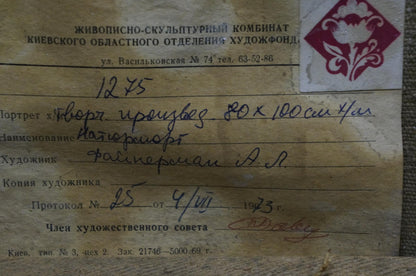 ЖИВОПИСНО-СКУЛЬПТУРНЫЙ КОМБИНАТ
КИЕВСКОГО ОБЛАСТНОГО ОТДЕЛЕНИЯ ХУДОЖФОНД
ул. Васильковская № 74 тел. 63-52-86
1275
Портрет х/ Творч. произвед. 80 х 100 см х/м
Наименование Натюрморт
Художник Файнерман А. Л.
Копия художника
Протокол № 25 от 4/VII 1973 г.
Член художественного совета
Киев, тип. № 3, цех 2. Зак. 21746—5000 69 г.